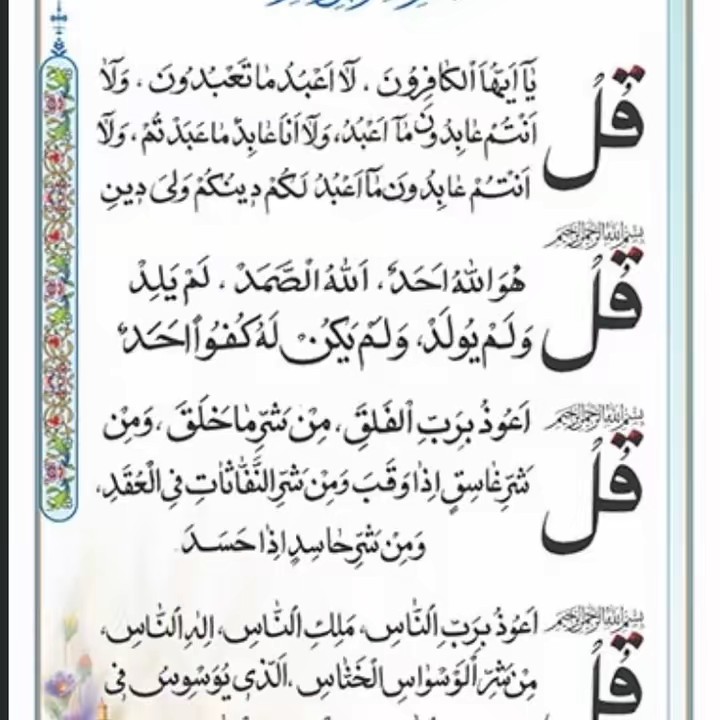 قُلْ يَآ اَيُّهَا الْكَافِرُونَ ، لَآ اَعْبُدُ مَا تَعْبُدُونَ ، وَلَآ
اَنْتُمْ عَابِدُونَ مَآ اَعْبُدُ، وَلَآ اَنَا۬ عَابِدٌ مَا عَبَدْتُمْ ، وَلَآ
اَنْتُمْ عَابِدُونَ مَآ اَعْبُدُ لَكُمْ دِينُكُمْ وَلِيَ دِينِ
بِسْمِ اللهِ الرَّحْمٰنِ الرَّحِيمِ
قُلْ هُوَ اللهُ اَحَدٌ ، اَللهُ الصَّمَدُ ، لَمْ يَلِدْ
وَلَمْ يُولَدْ، وَلَمْ يَكُنْ لَهُ كُفُوًا اَحَدٌ
بِسْمِ اللهِ الرَّحْمٰنِ الرَّحِيمِ
قُلْ اَعُوذُ بِرَبِّ الْفَلَقِ ، مِنْ شَرِّ مَا خَلَقَ ، وَمِنْ
شَرِّ غَاسِقٍ اِذَا وَقَبَ وَمِنْ شَرِّ النَّفَّاثَاتِ فِي الْعُقَدِ،
وَمِنْ شَرِّ حَاسِدٍ اِذَا حَسَدَ
بِسْمِ اللهِ الرَّحْمٰنِ الرَّحِيمِ
قُلْ اَعُوذُ بِرَبِّ النَّاسِ، مَلِكِ النَّاسِ، اِلٰهِ النَّاسِ،
مِنْ شَرِّ الْوَسْوَاسِ الْخَنَّاسِ ، اَلَّذِي يُوَسْوِسُ فِي